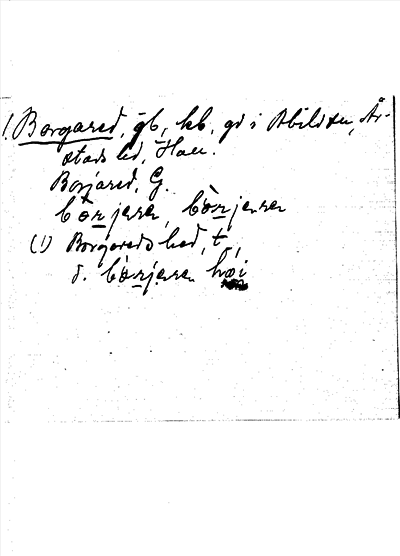 1. Borgared, gb, kb, gd i Abild sn, År-
stads hd, Hall.
Borjared, G.
bo̱rjarer, bo̱rjenren
(1) Borgareds hed, t.,
d. bo̱rjaren hæi